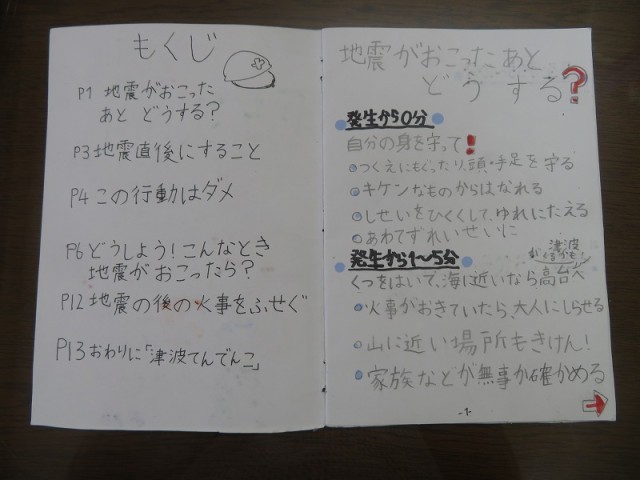 もくじ
P1 地震がおこった
あと どうする?
P3 地震直後にすること
P4 この行動はダメ
P6 どうしよう!こんなとき
地震がおこったら?
P12 地震の後の火事をふせぐ
P13 おわりに「津波てんでんこ」
地震がおこったあと
どうする?
発生から0分
自分の身を守って!
つくえにもぐったり、頭・手足を守る
キケンなものからはなれる
しせいをひくくして、ゆれにたえる
あわてずれいせいに
発生から1〜5分
津波
がくるかも!
くつをはいて、海に近いなら高台へ
火事がおきていたら、大人にしらせる
山に近い場所もきけん!
家族などが無事か確かめる
-1-